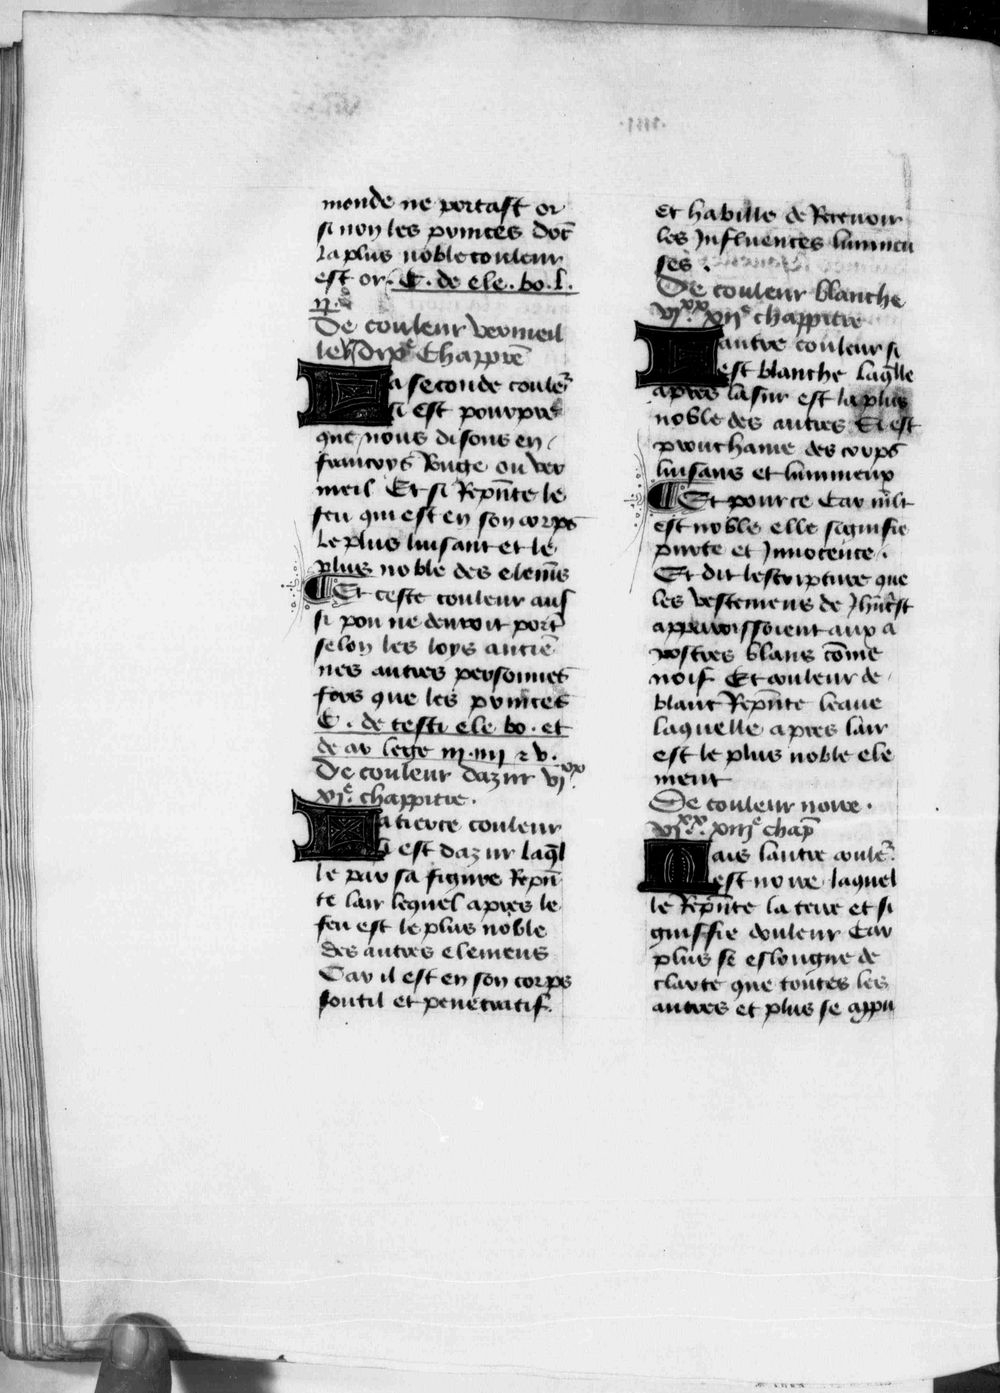 monde ne portast or
si non les princes dōt
la plus noble couleur
est or. C. de ele. bo. l.
De couleur vermeil
le Chapp̄e
La seconde couler̄
si est pourpre
que nous disons en
francoys Ruge ou ver
meil Et si Rep̄nte le
feu qui est en son corps
le plus luisant et le
plus noble des elem̄s
¶ Et ceste couleur aus
si pou ne deuroit port̄
selon les loys anciē
nes autres personnes
fors que les princes
C. de testi ele. bo. et
de ar lege m. iiii z v.
De couleur dazur vjxx
xie. chappitre.
La tierce couleur
si est dazur laq̄l
le par sa figure Rep̄n
te lair lequel apres le
feu est le plus noble
des autres elemens
Car il est en son corps
soutil et penetratif.
et habille de Receuoir
les Influences lumineu
ses.
De couleur blanche
vjxx. xije chappitre
Lautre couleur si
est blanche laq̄lle
apres lasur est la plus
noble des autres Et est
prouchaine des corps
luisans et lumineux
¶ Et pource Car m̄lt
est noble elle signifie
purte et Innocence.
Et dit lescripture que
les vestemens de Jhūcst
apparoissoient aux a
postres blans cōme
noif Et couleur de
blanc Rep̄nte leaue
laquelle apres lair
est le plus noble ele
ment
De couleur noire.
vjxx. xiije chap̄
Mais lautre couler̄
est noire laquel
le Rep̄nte la terre et si
gniffie douleur Car
plus se eslongne de
clarte que toutes les
autres et plus se appu